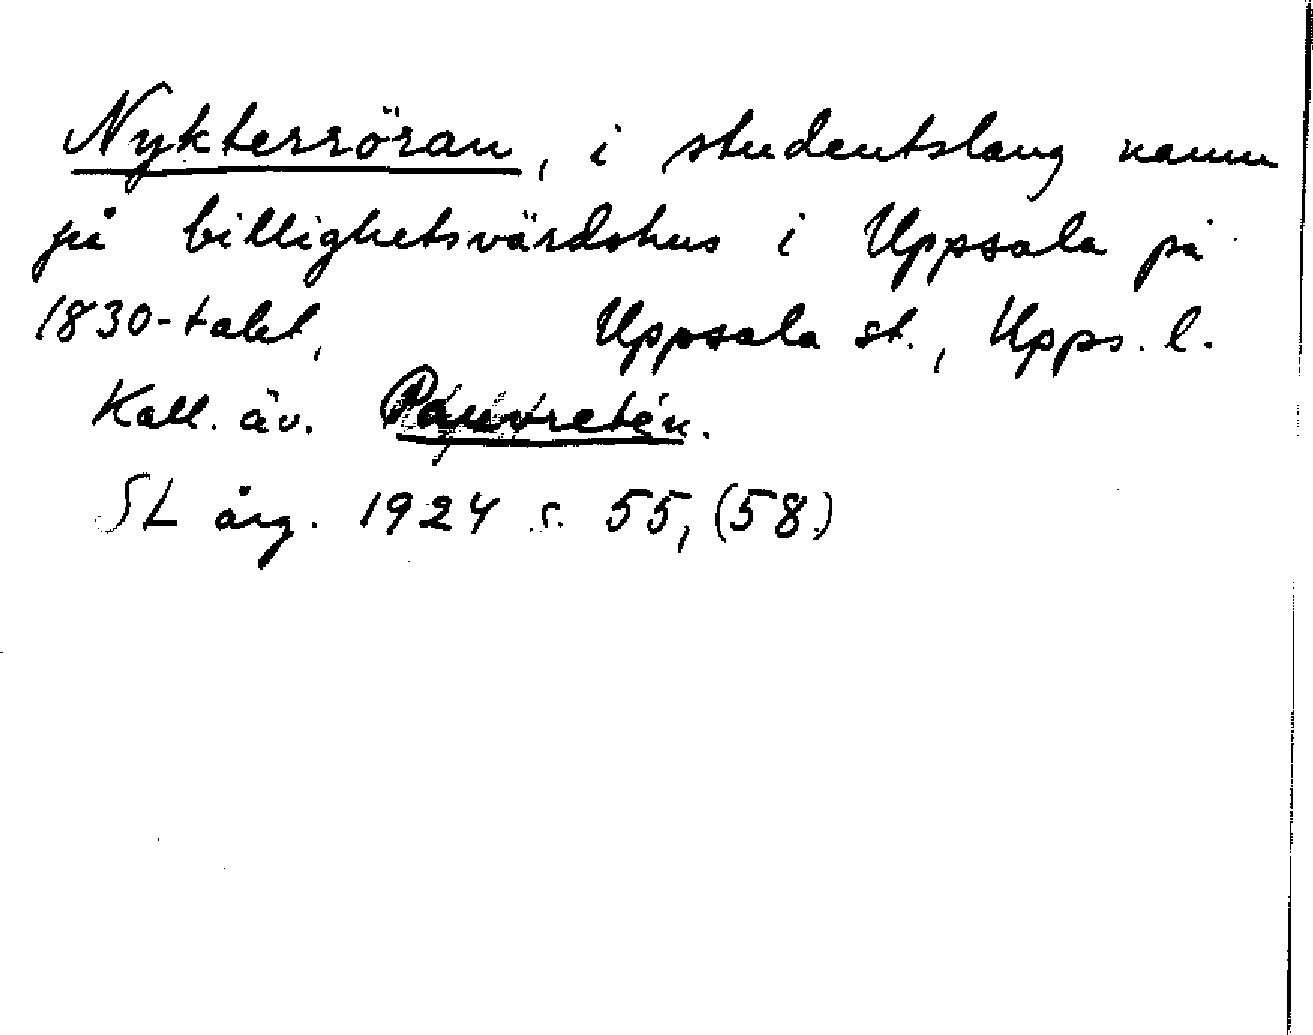 Nykterröran, i studentslang namn
på billighetsvärdshus i Uppsala på
1830-talet, Uppsala st., Upps. l.
Kall. äv. Pauvretén.
SL årg. 1924 s. 55, (58)